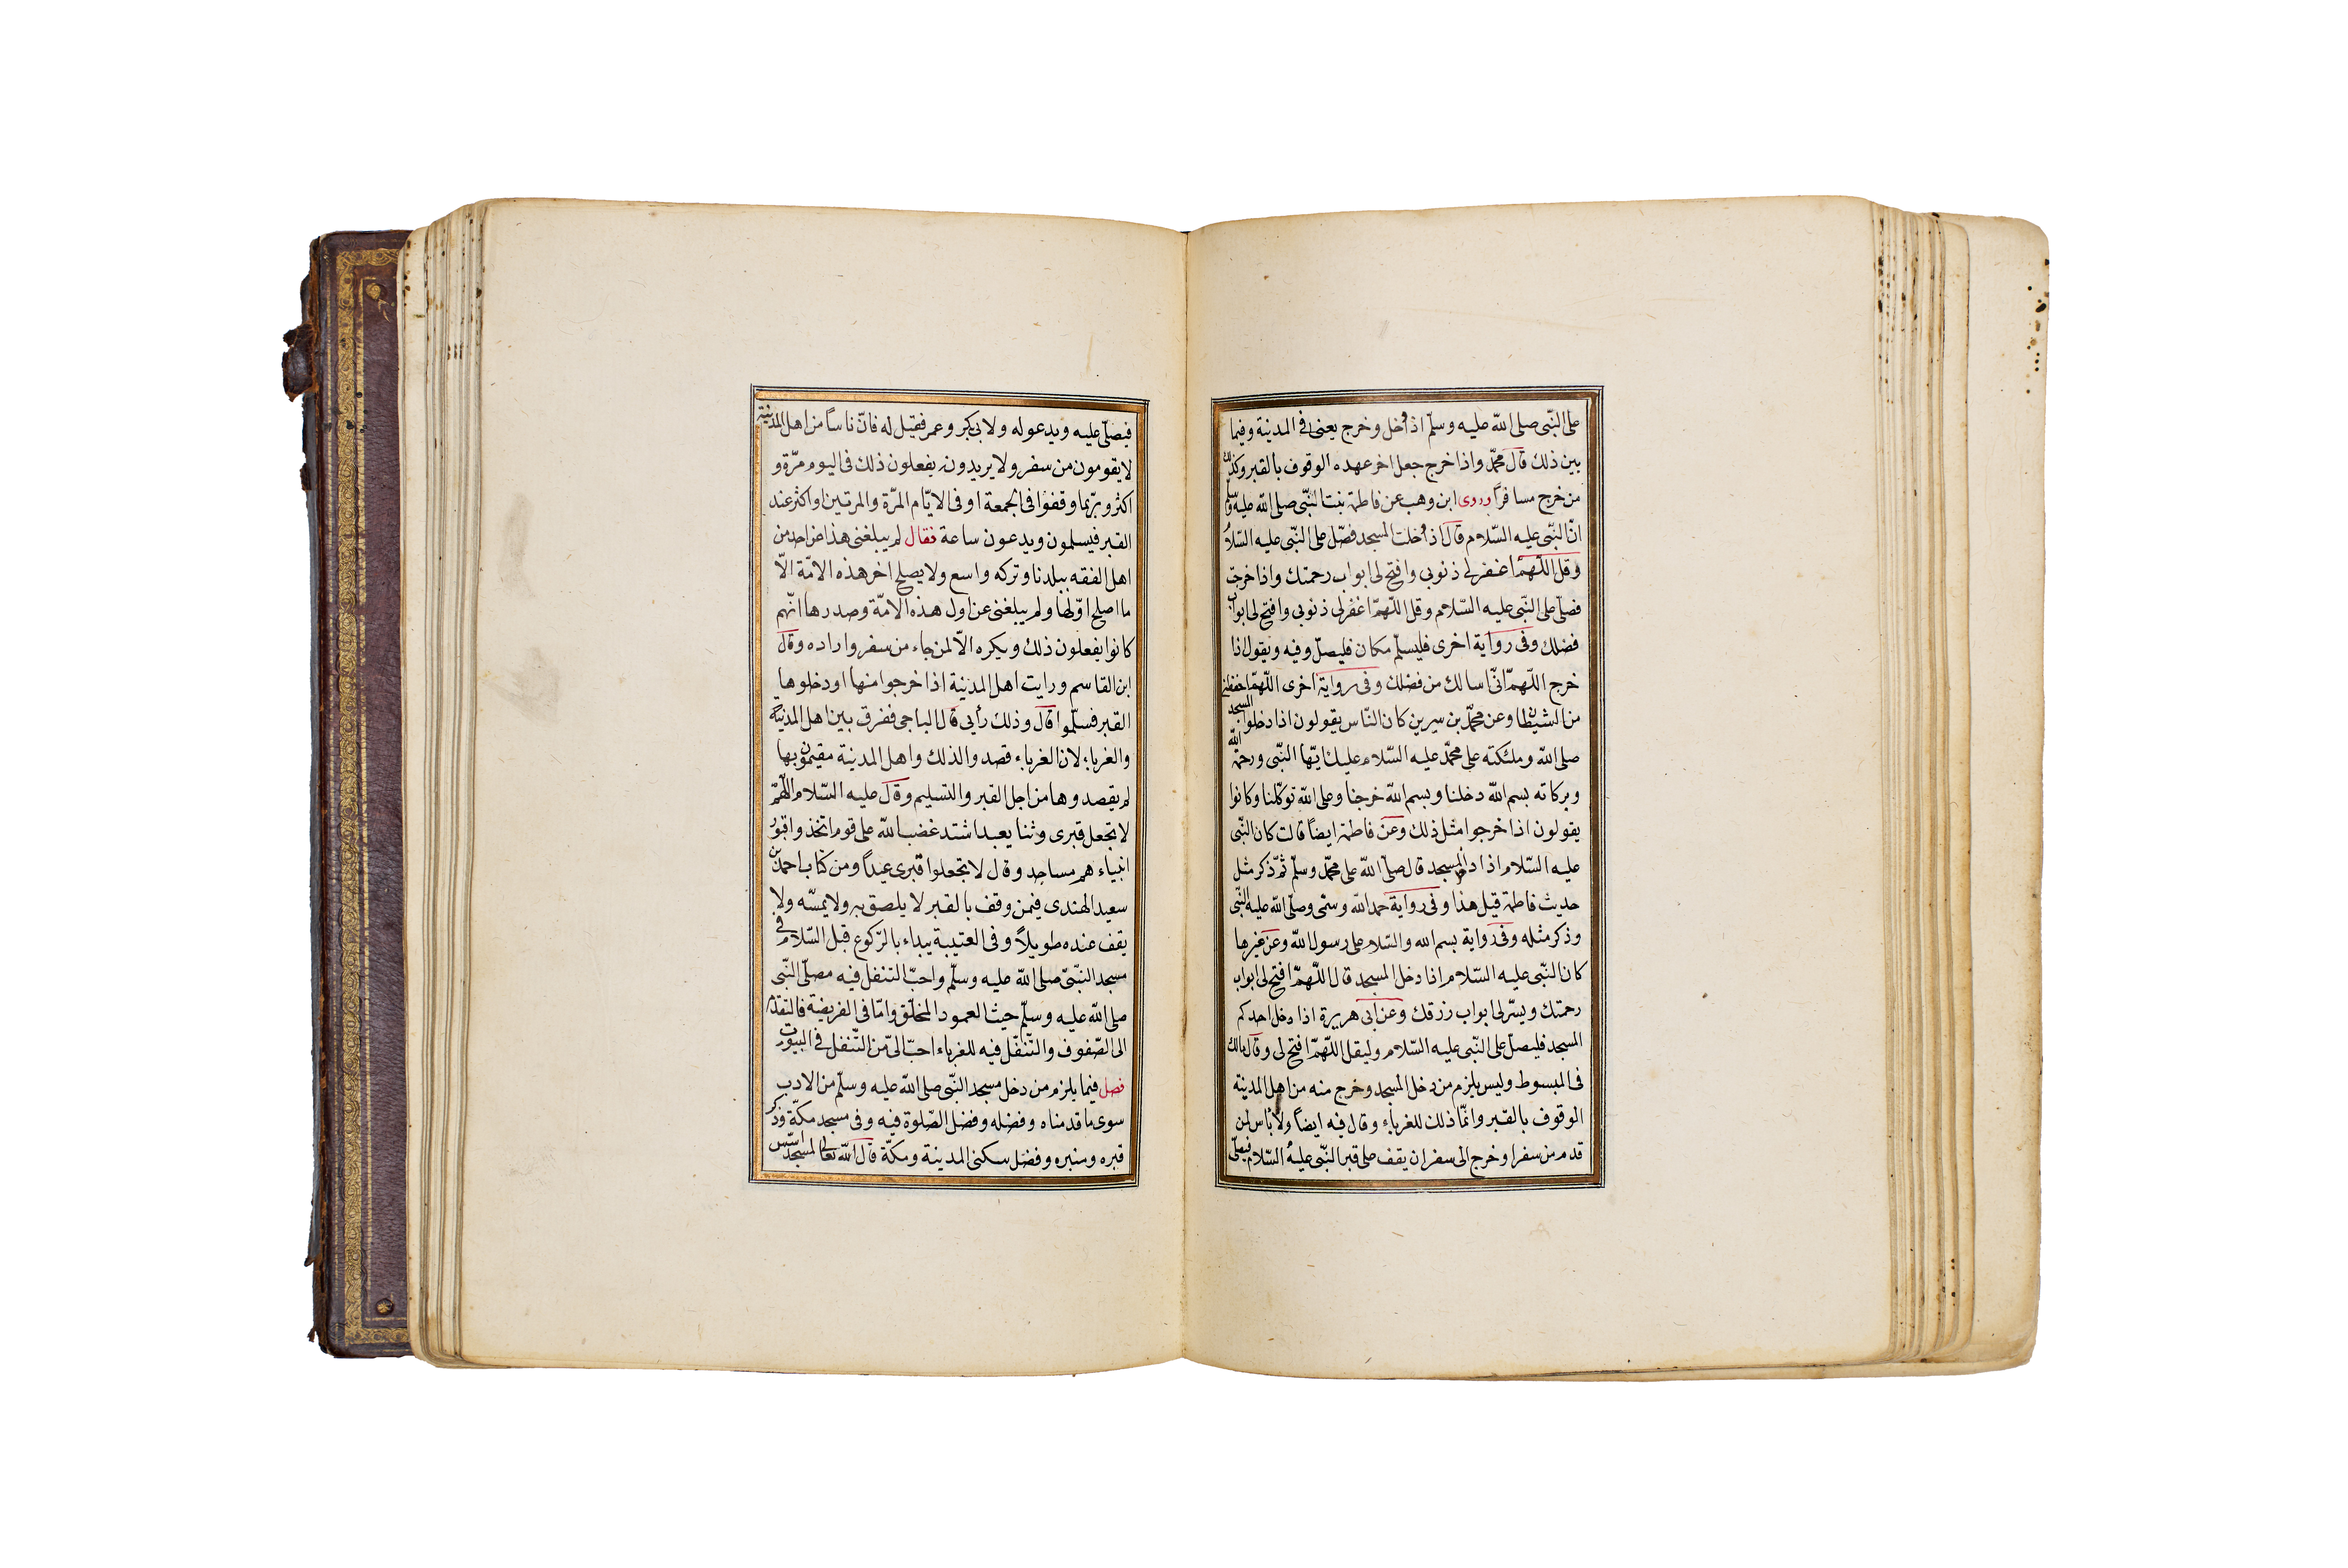 على النّبى صلى الله عليه وسلّم اذا دخل وخرج يعنى فى المدينة وفيما
بين ذلك قال محمّد واذا خرج جعل اخر عهده الوقوف بالقبر وكذلك
من خرج مسافرًا وروى ابن وهب عن فاطمة بنت النّبى صلى الله عليه وسلّم
انّ النّبى عليه السّلام قال اذا دخلت المسجد فصّل على النّبى عليه السّلام
وقل اللّهمّ اغفر لى ذنوبى وافتح لى ابواب رحمتك واذا خرجت
فصلّ على النّبى عليه السّلام وقل اللّهمّ اغفر لى ذنوبى وافتح لى ابواب
فضلك وفى رواية اخرى فليسلّم مكان فليصلّ وفيه ويقول اذا
خرج اللّهمّ انّى اسالك من فضلك وفى رواية اخرى اللّهمّ احفظنى
من الشيطان وعن محمّد بن سيرين كان النّاس يقولون اذا دخلوا المسجد
صلى الله وملئكته على محمّد عليه السّلام عليك ايّها النّبى ورحمة الله
وبركاته بسم الله دخلنا وبسم الله خرجنا وعلى الله توكّلنا وكانوا
يقولون اذا خرجوا مثل ذلك وعن فاطمة ايضاً قالت كان النّبى
عليه السّلام اذا دخل المسجد قال صلّى الله على محمّد وسلّم ثمّ ذكر مثل
حديث فاطمة قبل هذا وفى رواية حمد الله وسمّى وصلّى الله عليه النّبى
وذكر مثله وفى رواية بسم الله والسّلام على رسول الله وعن غيرها
كان النّبى عليه السّلام اذا دخل المسجد قال اللّهمّ افتح لى ابواب
رحمتك ويسّر لى ابواب رزقك وعن ابى هريرة اذا دخل احدكم
المسجد فليصلّ على النّبى عليه السّلام وليقل اللّهمّ افتح لى وقال مالك
فى المبسوط وليس يلزم من دخل المسجد وخرج منه من اهل المدينة
الوقوف بالقبر وانمّا ذلك للغرباء وقال فيه ايضاً ولا بأس لمن
قدم من سفر او خرج الى سفر ان يقف على قبر النّبى عليه السّلام فيصلّى
فيصلّى عليه ويدعو له ولابى بكر وعمر فقيل له فانّ ناساً من اهل المدينة
لا يقومون من سفر ولا يريدون يفعلون ذلك فى اليوم مرّة و
اكثر وربّما وقفوا فى الجمعة او فى الايّام المرّة والمرتين او اكثر عند
القبر فيسلمون ويدعون ساعة فقال لم يبلغنى هذا عن احد من
اهل الفقه ببلدنا وتركه واسع ولا يصلح اخر هذه الامّة الاّ
ما اصلح اوّلها ولم يبلغنى عن اول هذه الامّة وصدرها انّهم
كانوا يفعلون ذلك ويكره الاّ لمن جاء من سفر واراده وقال
ابن القاسم ورايت اهل المدينة اذا خرجوا منها او دخلوها
القبر فسلّموا قال وذلك رأيى قال الباجى ففرق بين اهل المدينة
والغرباء لان الغرباء قصدوا لذلك واهل المدينة مقيمون بها
لم يقصدوها من اجل القبر والتسليم وقال عليه السّلام اللّهمّ
لا تجعل قبرى وثنا يعبد اشتد غضب الله على قوم اتخذوا قبور
انبياءهم مساجد وقال لا تجعلوا قبرى عيداً ومن كتاب احمد بن
سعيد الهندى فيمن وقف بالقبر لا يلصق به ولا يمسّه ولا
يقف عنده طويلاً وفى العتيبة يبداء بالرّكوع قبل السّلام فى
مسجد النّبىّ صلى الله عليه وسلّم واحبّ التنفل فيه مصلّى النّبى
صلى الله عليه وسلّم حيث العمود المخلّق وامّا فى الفريضة فالتقدم
الى الصّفوف والتّنفّل فيه للغرباء احبّ الىّ من التّنفل فى البيوت
فصل فيما يلزم من دخل مسجد النّبى صلى الله عليه وسلّم من الادب
سوى ما قدمناه وفضله وفضل الصّلوة فيه وفى مسجد مكّة وذكر
قبره ومنبره وفضل سكنى المدينة ومكّة قال الله تعالى لمسجد اسّس